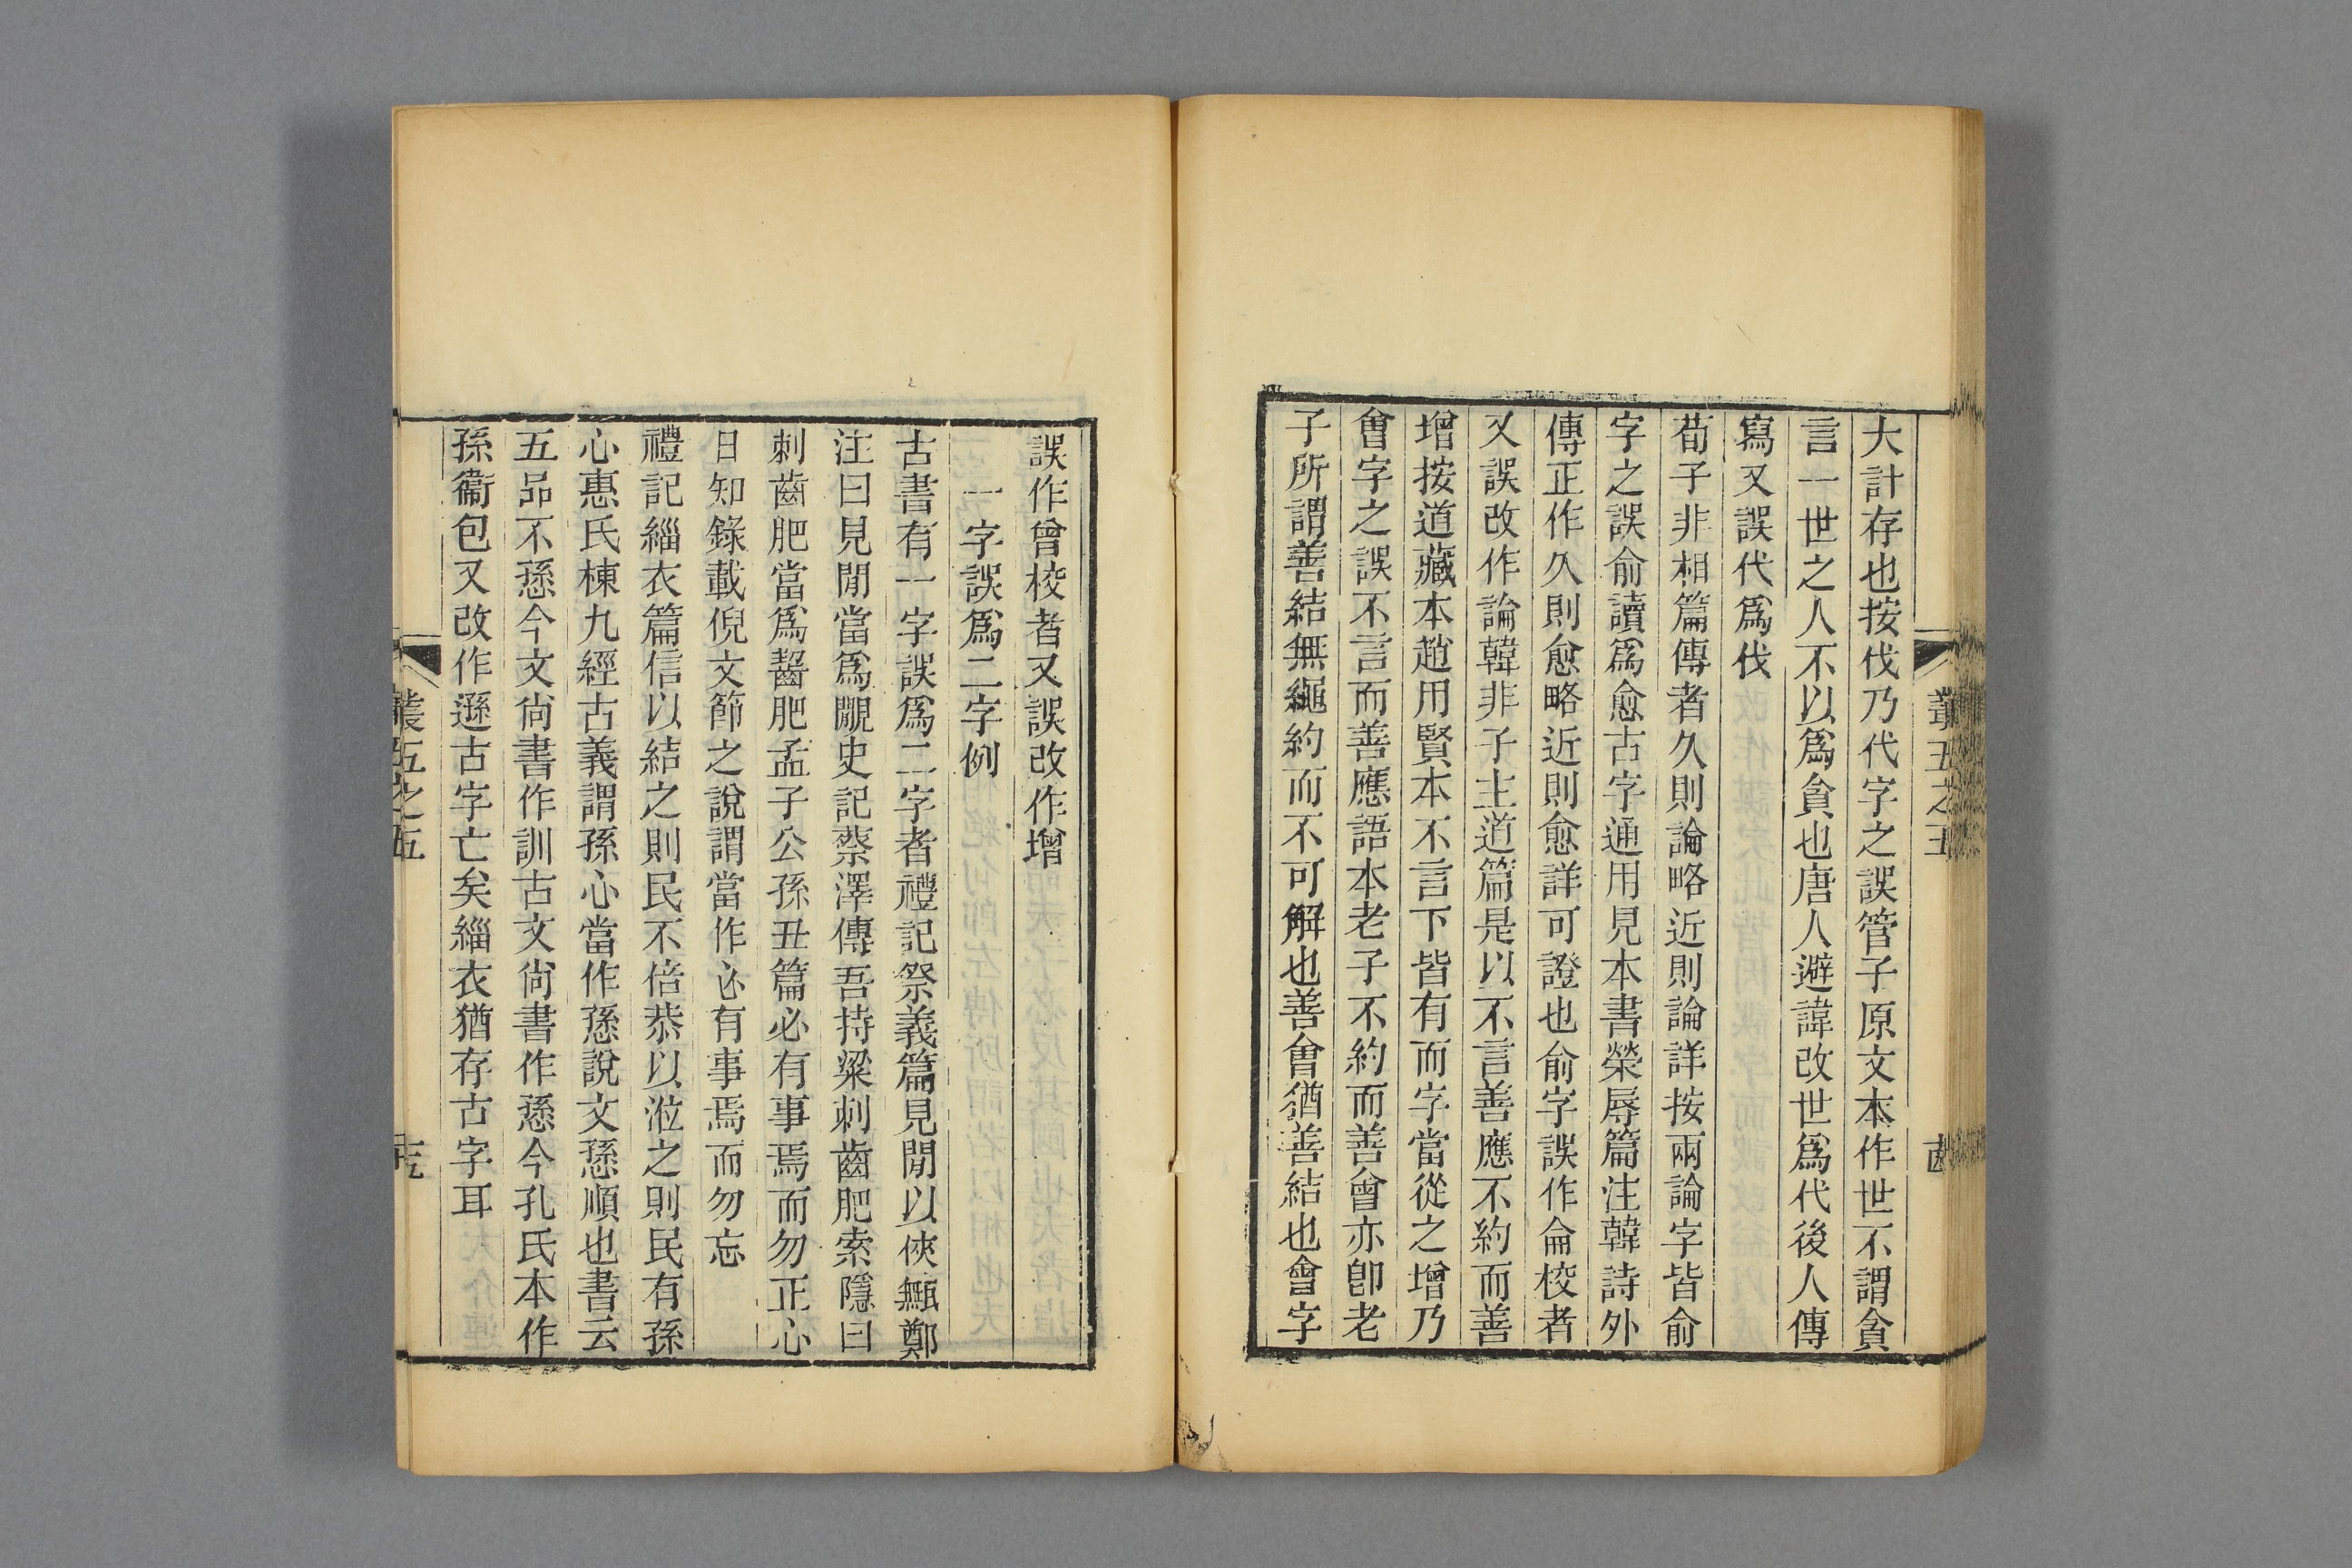 大計存也按伐乃代字之誤管子原文本作世不謂貪
言一世之人不以爲貪也唐人避諱改世爲代後人傳
寫又誤代爲伐
荀子非相篇傳者久則論略近則論詳按兩論字皆俞
字之誤俞讀爲愈古字通用見本書榮辱篇注韓詩外
傳正作久則愈略近則愈詳可證也俞字誤作侖校者
又誤改作論韓非子主道篇是以不言善應不約而善
增按道藏本趙用賢本不言下皆有而字當從之增乃
會字之誤不言而善應語本老子不約而善會亦卽老
子所謂善結無繩約而不可解也善會猶善結也會字
誤作曾校者又誤改作增
一字誤爲二字例
古書有一字誤爲二字者禮記祭義篇見閒以俠甒鄭
注曰見閒當爲覸史記蔡澤傳吾持粱刺齒肥索隱曰
刺齒肥當爲齧肥孟子公孫丑篇必有事焉而勿正心
日知錄載倪文節之說謂當作必有事焉而勿忘
禮記緇衣篇信以結之則民不倍恭以涖之則民有孫
心惠氏棟九經古義謂孫心當作愻說文愻順也書云
五品不愻今文尙書作訓古文尙書作愻今孔氏本作
孫衞包又改作遜古字亡矣緇衣猶存古字耳
叢五之五